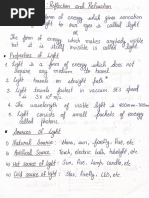 Reflection and Refraction
The form of energy which gives sensation
of is called light
OR
The form of energy which makes anybody visible
but it is itself invisible is called light
• Properties of Light
1. Light is a form of energy which does not require
any medium to travel
2. Light travels in straight path
3. Light travels fastest in vacuum its speed
is 3×10⁸ m/s
4. The wavelength of visible light is
5. Light contains small packets of energy
• Sources of Light
1) Natural Source: Moon, sun, firefly, fire, etc
2) Artificial Source: Torch, electric bulb, tubelight, etc.
3) Hot source of light: Sun, Fire, lamp, candle, etc
4) Cold source of light: Star, firefly, LED, etc.